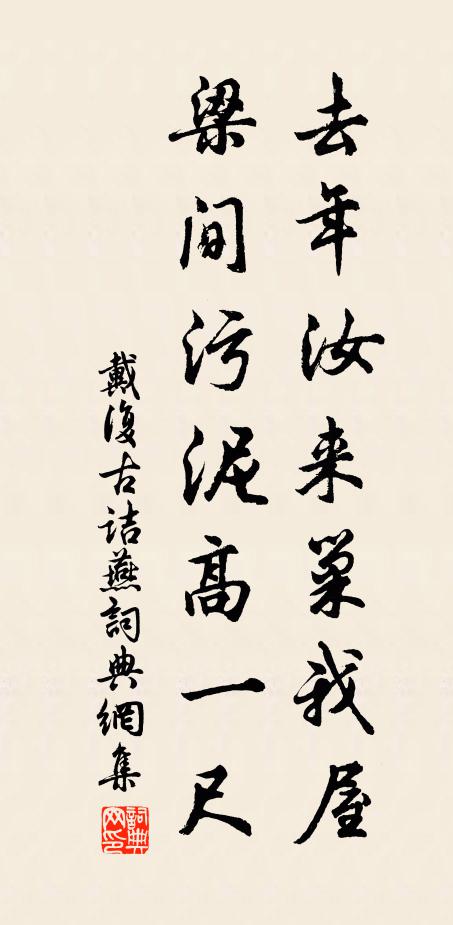 去年汝来巢我屋
梁间污泥高一尺
戴復古詰燕詞典網集
詞典
网印